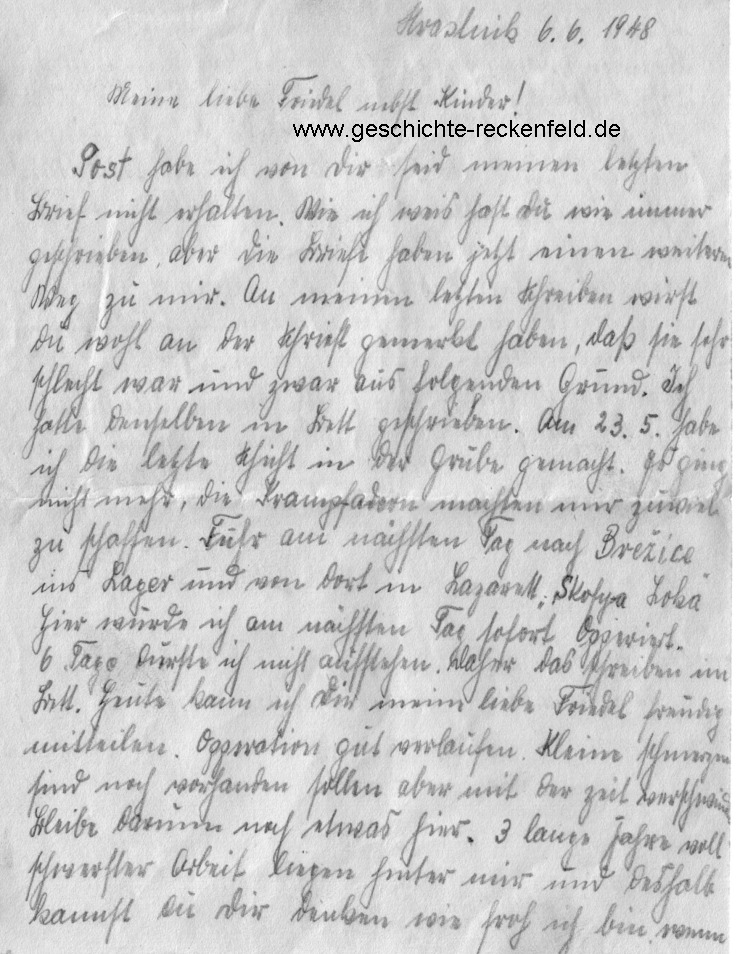 Hrastnik 6. 6. 1948
Meine liebe Friedel nebst Kinder!
www.geschichte-reckenfeld.de
Post habe ich von dir seid meinen letzten
Brief nicht erhalten. Wie ich weis hast du wie immer
geschrieben, aber die Briefe haben jetzt einen weiteren
Weg zu mir. An meinen letzten Schreiben wirst
du wohl an der Schrieft gemerkt haben, daß sie sehr
schlecht war und zwar aus folgenden Grund. Ich
hatte denselben in Bett geschrieben. Am 23. 5. habe
ich die letzte Schicht in der Grube gemacht. Es ging
nicht mehr, die Krampfadern machten mir zuviel
zu schaffen. Fuhr am nächsten Tag nach Brežice
ins Lager und von dort in Lazarett, Skofya Loka
Hier wurde ich am nächsten Tag sofort Opperiert.
6 Tage durfte ich nicht aufstehen. Daher das schreiben im
Bett. Heute kann ich Dir meine liebe Friedel freudig
mitteilen. Opperation gut verlaufen. Kleine schmerzen
sind noch vorhanden sollen aber mit der zeit
Bleibe darum noch etwas hier. 3 lange Jahre voll
schwerster Arbeit liegen hinter mir und deshalb
kannst du dir denken wie froh ich bin, wenn